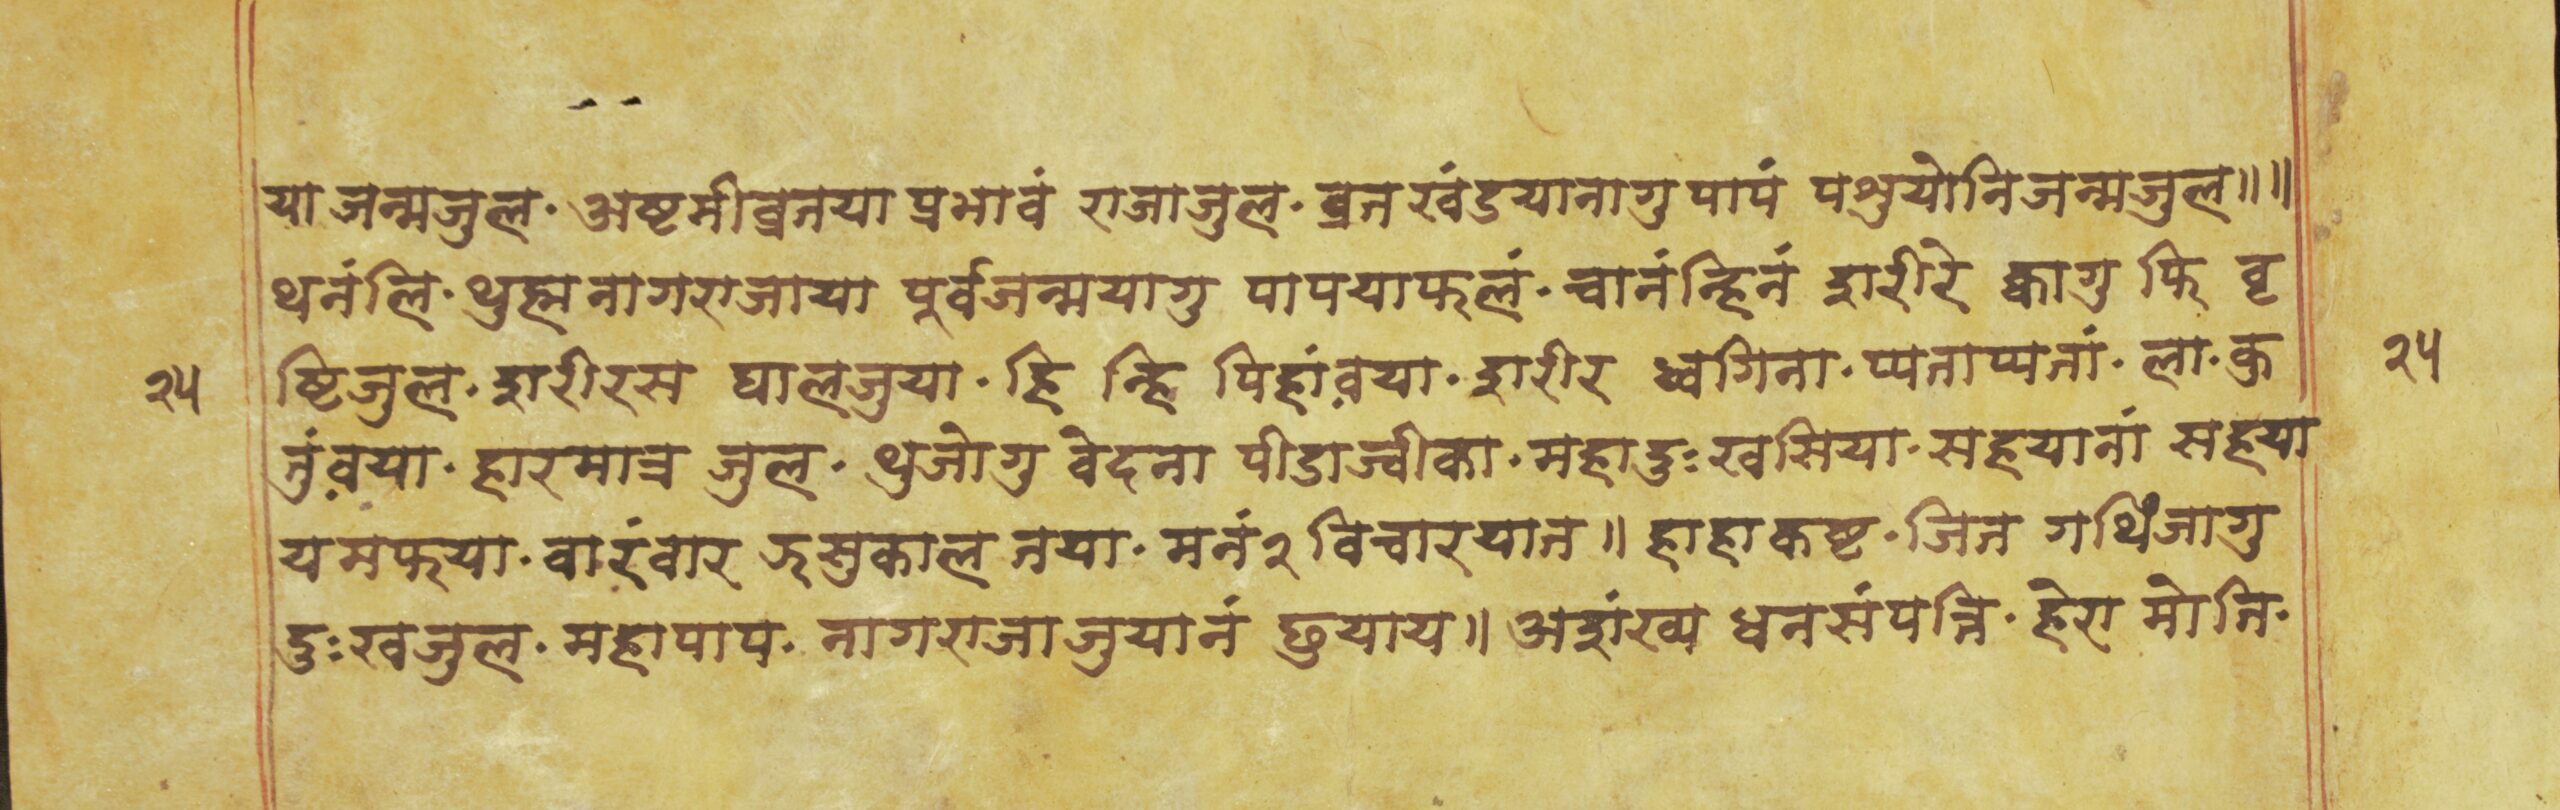 या जन्मजुल. अष्टमीव्रतया प्रभावं राजाजुल. व्रत खंडयानागु पापं पशुयोनिजन्मजुल॥॥
थनंलि. थुह्म नागराजाया पूर्वजन्मयागु पापयाफलं. चानंन्हिनं शरीरे क्वागु फि वृ
२५ ष्टिजुल. शरीरस घालजुया. हि न्हि पिहांव़या. शरीर ध्वगिना. प्यताप्यतां. ला. कु
२५
तुंव़या. हारमात्र जुल. थुजोगु वेदना पीडाज्वीका. महादुःखसिया. सहयानां सहया
यमफया. वारंवार ऋसुकाल तया. मनं२ विचारयात॥ हाहाकष्ट. जित गथिंजागु
दुःखजुल. महापाप. नागराजाजुयानं छुयाय॥ अशंख्य धनसंपत्ति. हेरा मोति.